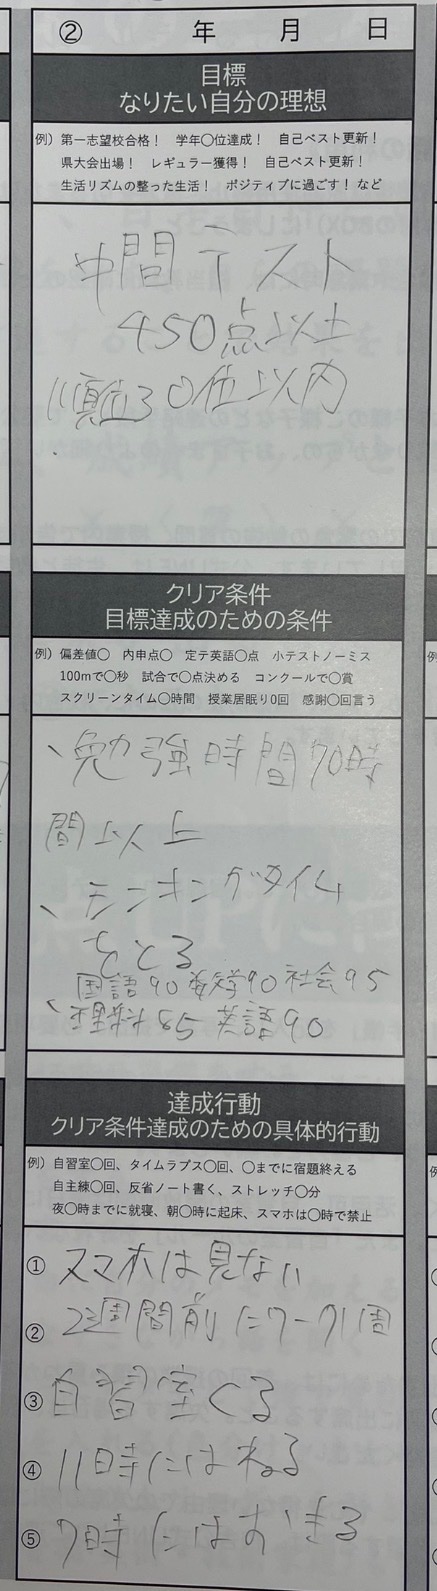 ② 年 月 日
目標
なりたい自分の理想
例）第一志望校合格！ 学年〇位達成！ 自己ベスト更新！
県大会出場！ レギュラー獲得！ 自己ベスト更新！
生活リズムの整った生活！ ポジティブに過ごす！ など
中間テスト
450点以上
順位30位以内
クリア条件
目標達成のための条件
例）偏差値〇 内申点〇 定テ英語〇点 小テストノーミス
100mで〇秒 試合で〇点決める コンクールで〇賞
スクリーンタイム〇時間 授業居眠り0回 感謝〇回言う
、勉強時間70時
間以上
、モンキングタイム
をとる
国語90数学90社会95
、理科85英語90
達成行動
クリア条件達成のための具体的行動
例）自習室〇回、タイムラプス〇回、〇までに宿題終える
自主練〇回、反省ノート書く、ストレッチ〇分
夜〇時までに就寝、朝〇時に起床、スマホは〇時で禁止
① スマホは見ない
② 2週間前にワーク1周
③ 自習室くる
④ 11時にはねる
⑤ 7時にはおきる